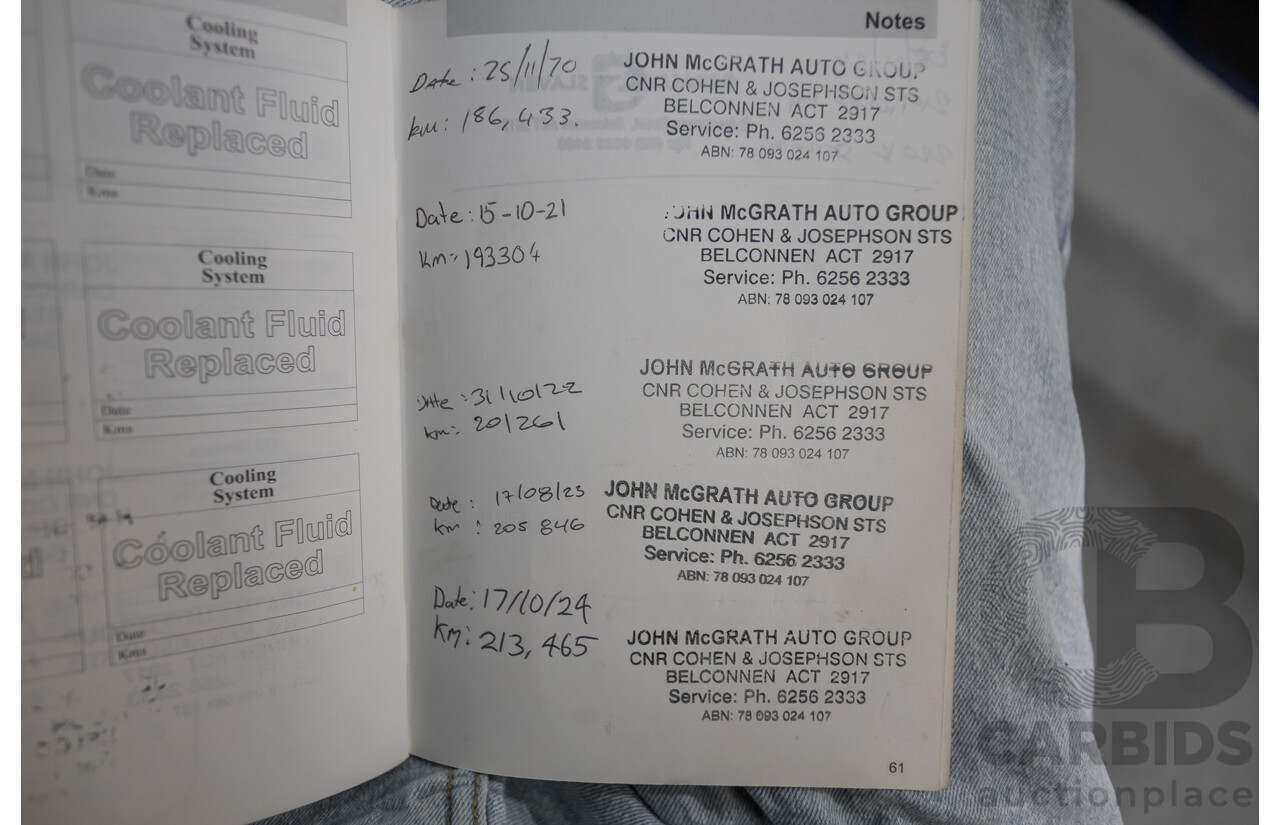 Cooling
System
Coolant Fluid
Replaced
Date
Kms
Cooling
System
Coolant Fluid
Replaced
Date
Kms
Cooling
System
Coolant Fluid
Replaced
Date
Kms
Notes
Date: 25/11/20
km: 186,433.
JOHN McGRATH AUTO GROUP
CNR COHEN & JOSEPHSON STS
BELCONNEN ACT 2917
Service: Ph. 6256 2333
ABN: 78 093 024 107
Date: 15-10-21
Km: 193304
JOHN McGRATH AUTO GROUP
CNR COHEN & JOSEPHSON STS
BELCONNEN ACT 2917
Service: Ph. 6256 2333
ABN: 78 093 024 107
Date: 31/10/22
km: 201261
JOHN McGRATH AUTO GROUP
CNR COHEN & JOSEPHSON STS
BELCONNEN ACT 2917
Service: Ph. 6256 2333
ABN: 78 093 024 107
Date: 17/08/23
km: 205 846
JOHN McGRATH AUTO GROUP
CNR COHEN & JOSEPHSON STS
BELCONNEN ACT 2917
Service: Ph. 6256 2333
ABN: 78 093 024 107
Date: 17/10/24
Km: 213,465
JOHN McGRATH AUTO GROUP
CNR COHEN & JOSEPHSON STS
BELCONNEN ACT 2917
Service: Ph. 6256 2333
ABN: 78 093 024 107
61
B
CARBIDS
auctionplace